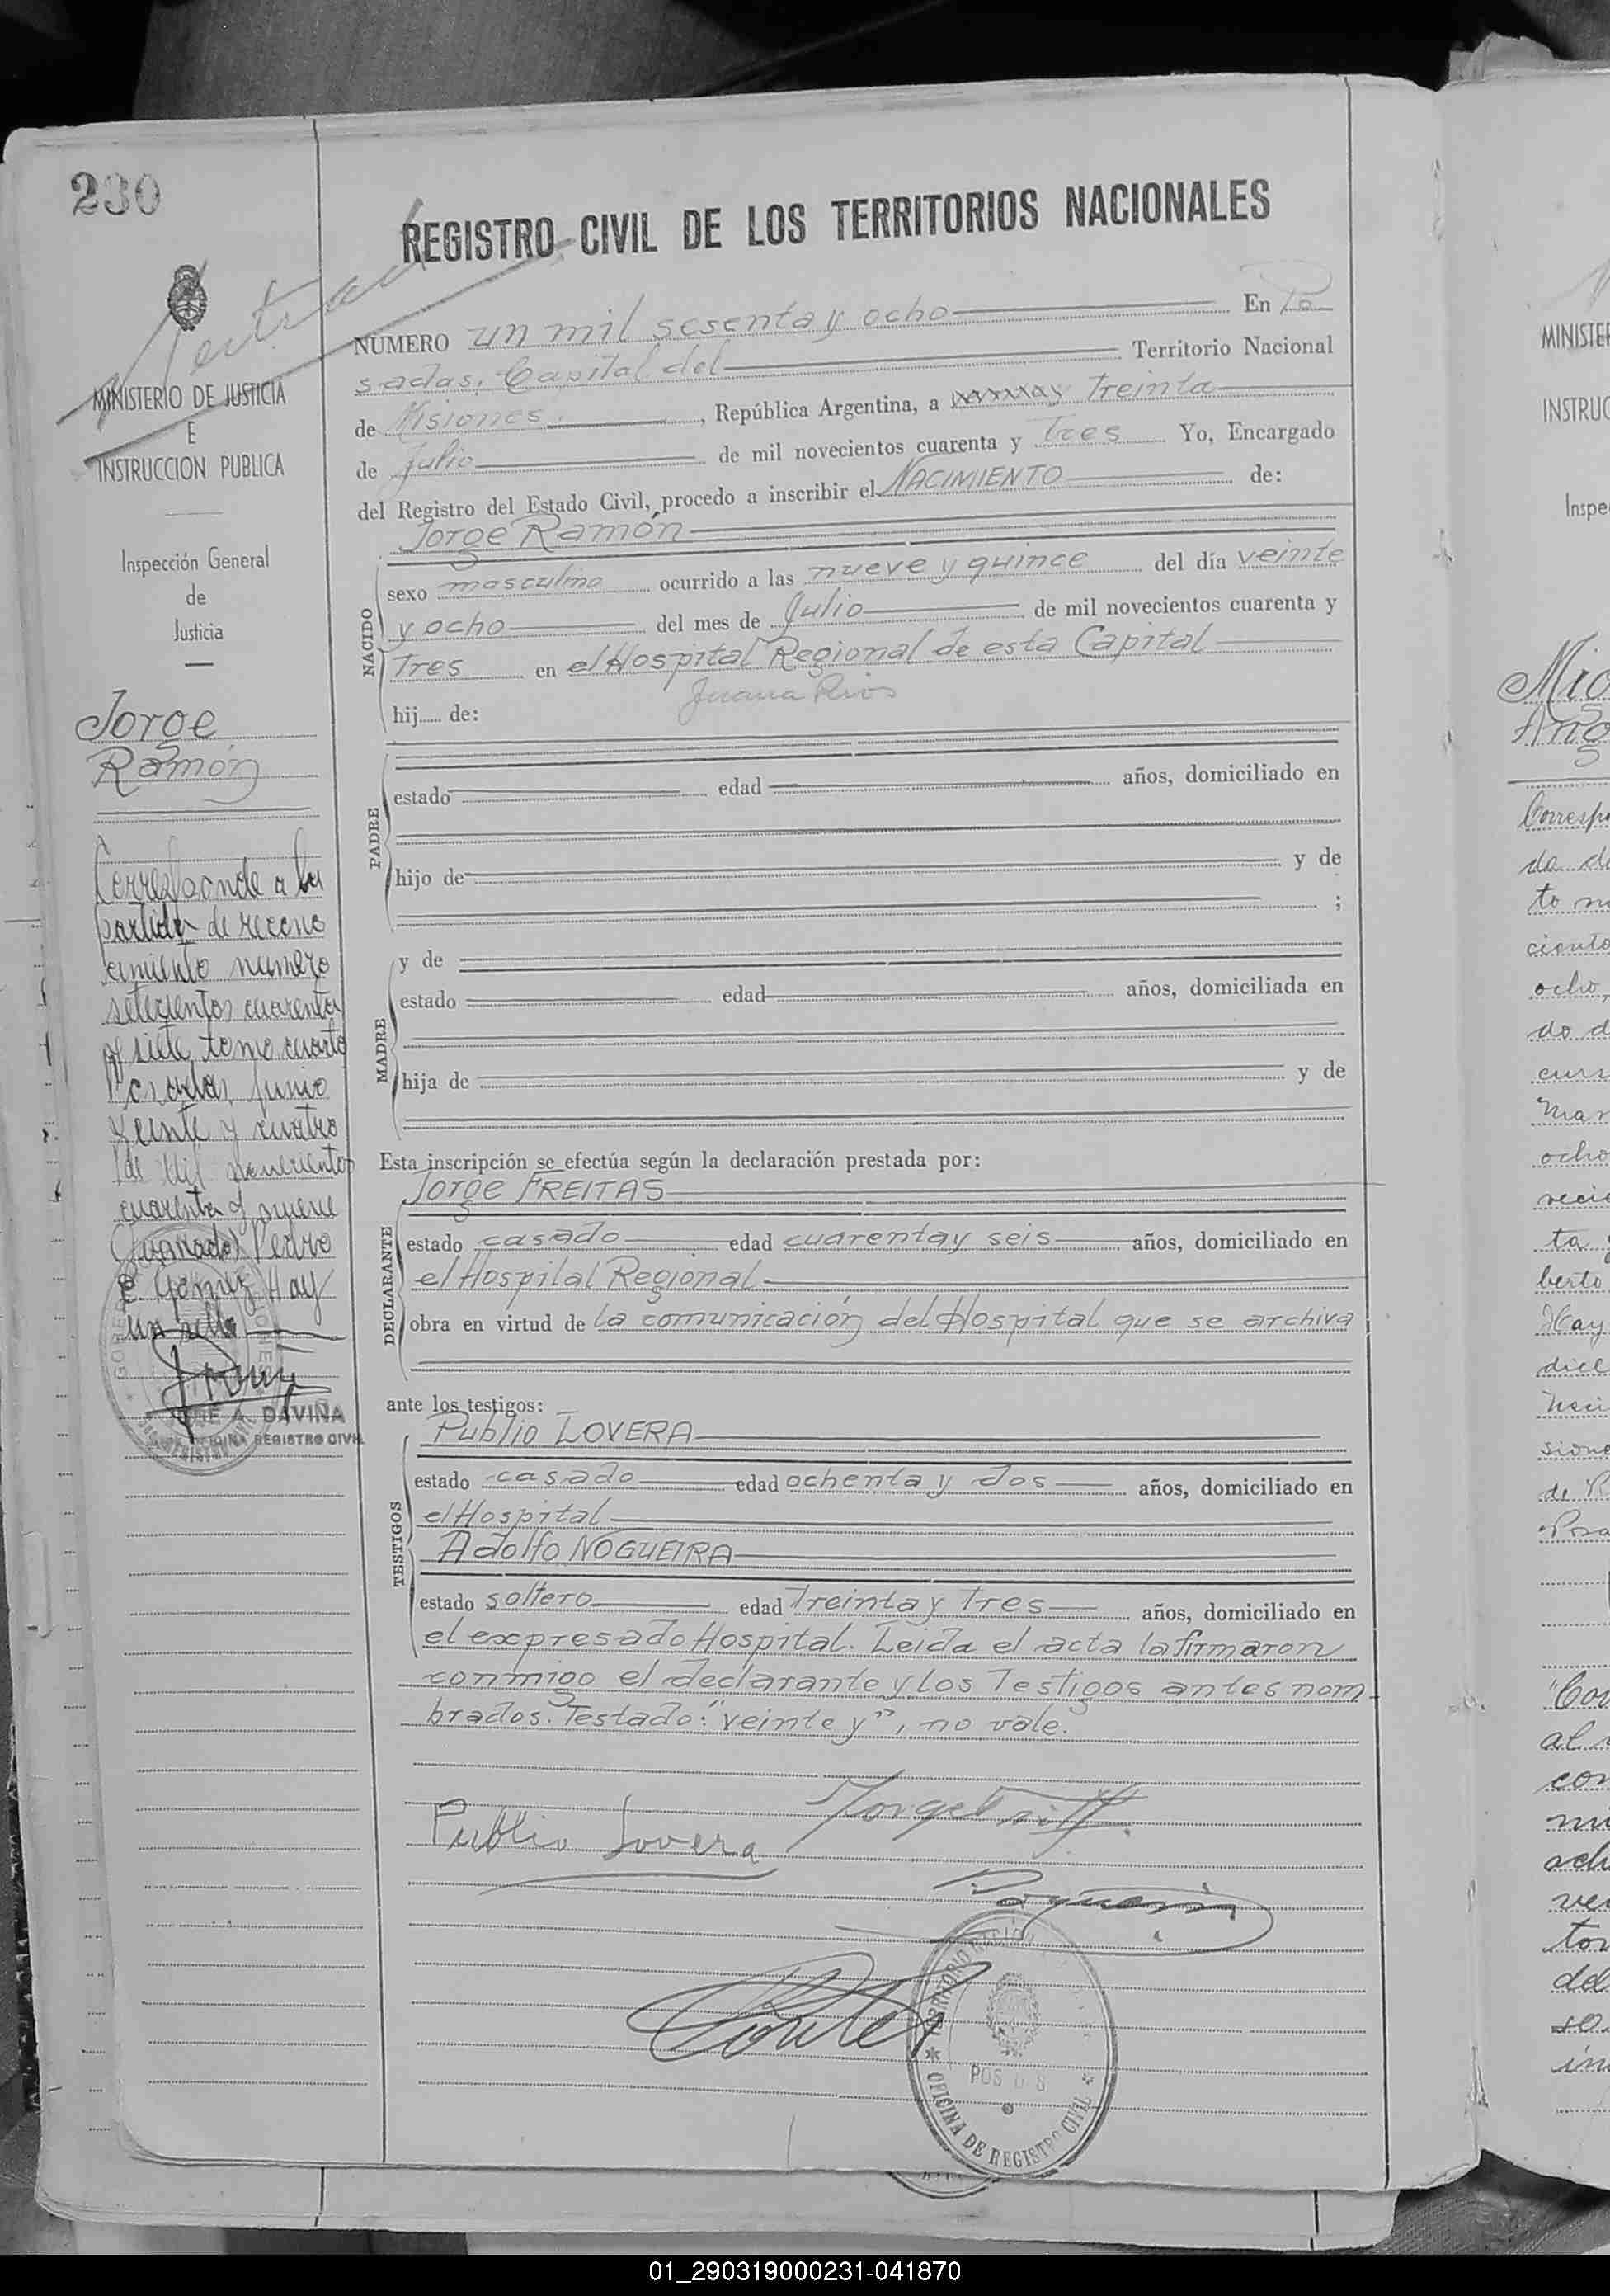 230
REGISTRO CIVIL DE LOS TERRITORIOS NACIONALES
NUMERO un mil sesenta y ocho En Po
sadas, Capital del Territorio Nacional
de Misiones. , República Argentina, a xxxxxxy Treinta
de Julio de mil novecientos cuarenta y Tres Yo, Encargado
del Registro del Estado Civil, procedo a inscribir el NACIMIENTO de:
Jorge Ramón
NACIDO
sexo masculino ocurrido a las nueve y quince del día veinte
y ocho del mes de Julio de mil novecientos cuarenta y
Tres en el Hospital Regional de esta Capital
Juana Rios
hij..... de:
PADRE
estado edad años, domiciliado en
hijo de y de
;
MADRE
y de
estado edad años, domiciliada en
hija de y de
Esta inscripción se efectúa según la declaración prestada por:
DECLARANTE
Jorge FREITAS
estado casado edad cuarenta y seis años, domiciliado en
el Hospital Regional
obra en virtud de la comunicación del Hospital que se archiva
ante los testigos:
TESTIGOS
Publio LOVERA
estado casado edad ochenta y dos años, domiciliado en
el Hospital
Adolfo NOGUEIRA
estado soltero edad Treinta y Tres años, domiciliado en
el expresado Hospital. Leida el acta la firmaron
conmigo el declarante y los Testigos antes nom
brados. Testado: "veinte y", no vale.
Publio Lovera
TERRITORIO
POSADAS
OFICINA DE REGISTRO CIVIL
MINISTERIO DE JUSTICIA
E
INSTRUCCION PUBLICA
Inspección General
de
Justicia
Jorge
Ramón
Corresponde a la
partida de recono
cimiento numero
setecientos cuarenta
y siete, tomo cuarto
Posadas, Junio
veinte y cuatro
de Mil novecientos
cuarenta y nueve
(firmado) Pedro
E. Gomez Hay
un sello
A. DAVIÑA
REGISTRO CIVIL
MINISTER
INSTRUC
Inspe
Mig
Ang
Corresp
da de
to nu
ciento
ocho,
do d
curs
Mar
ocho
ta y
berto
Hay
sione
de
Posa
al
con
ve
to
del
so
in
01_290319000231-041870